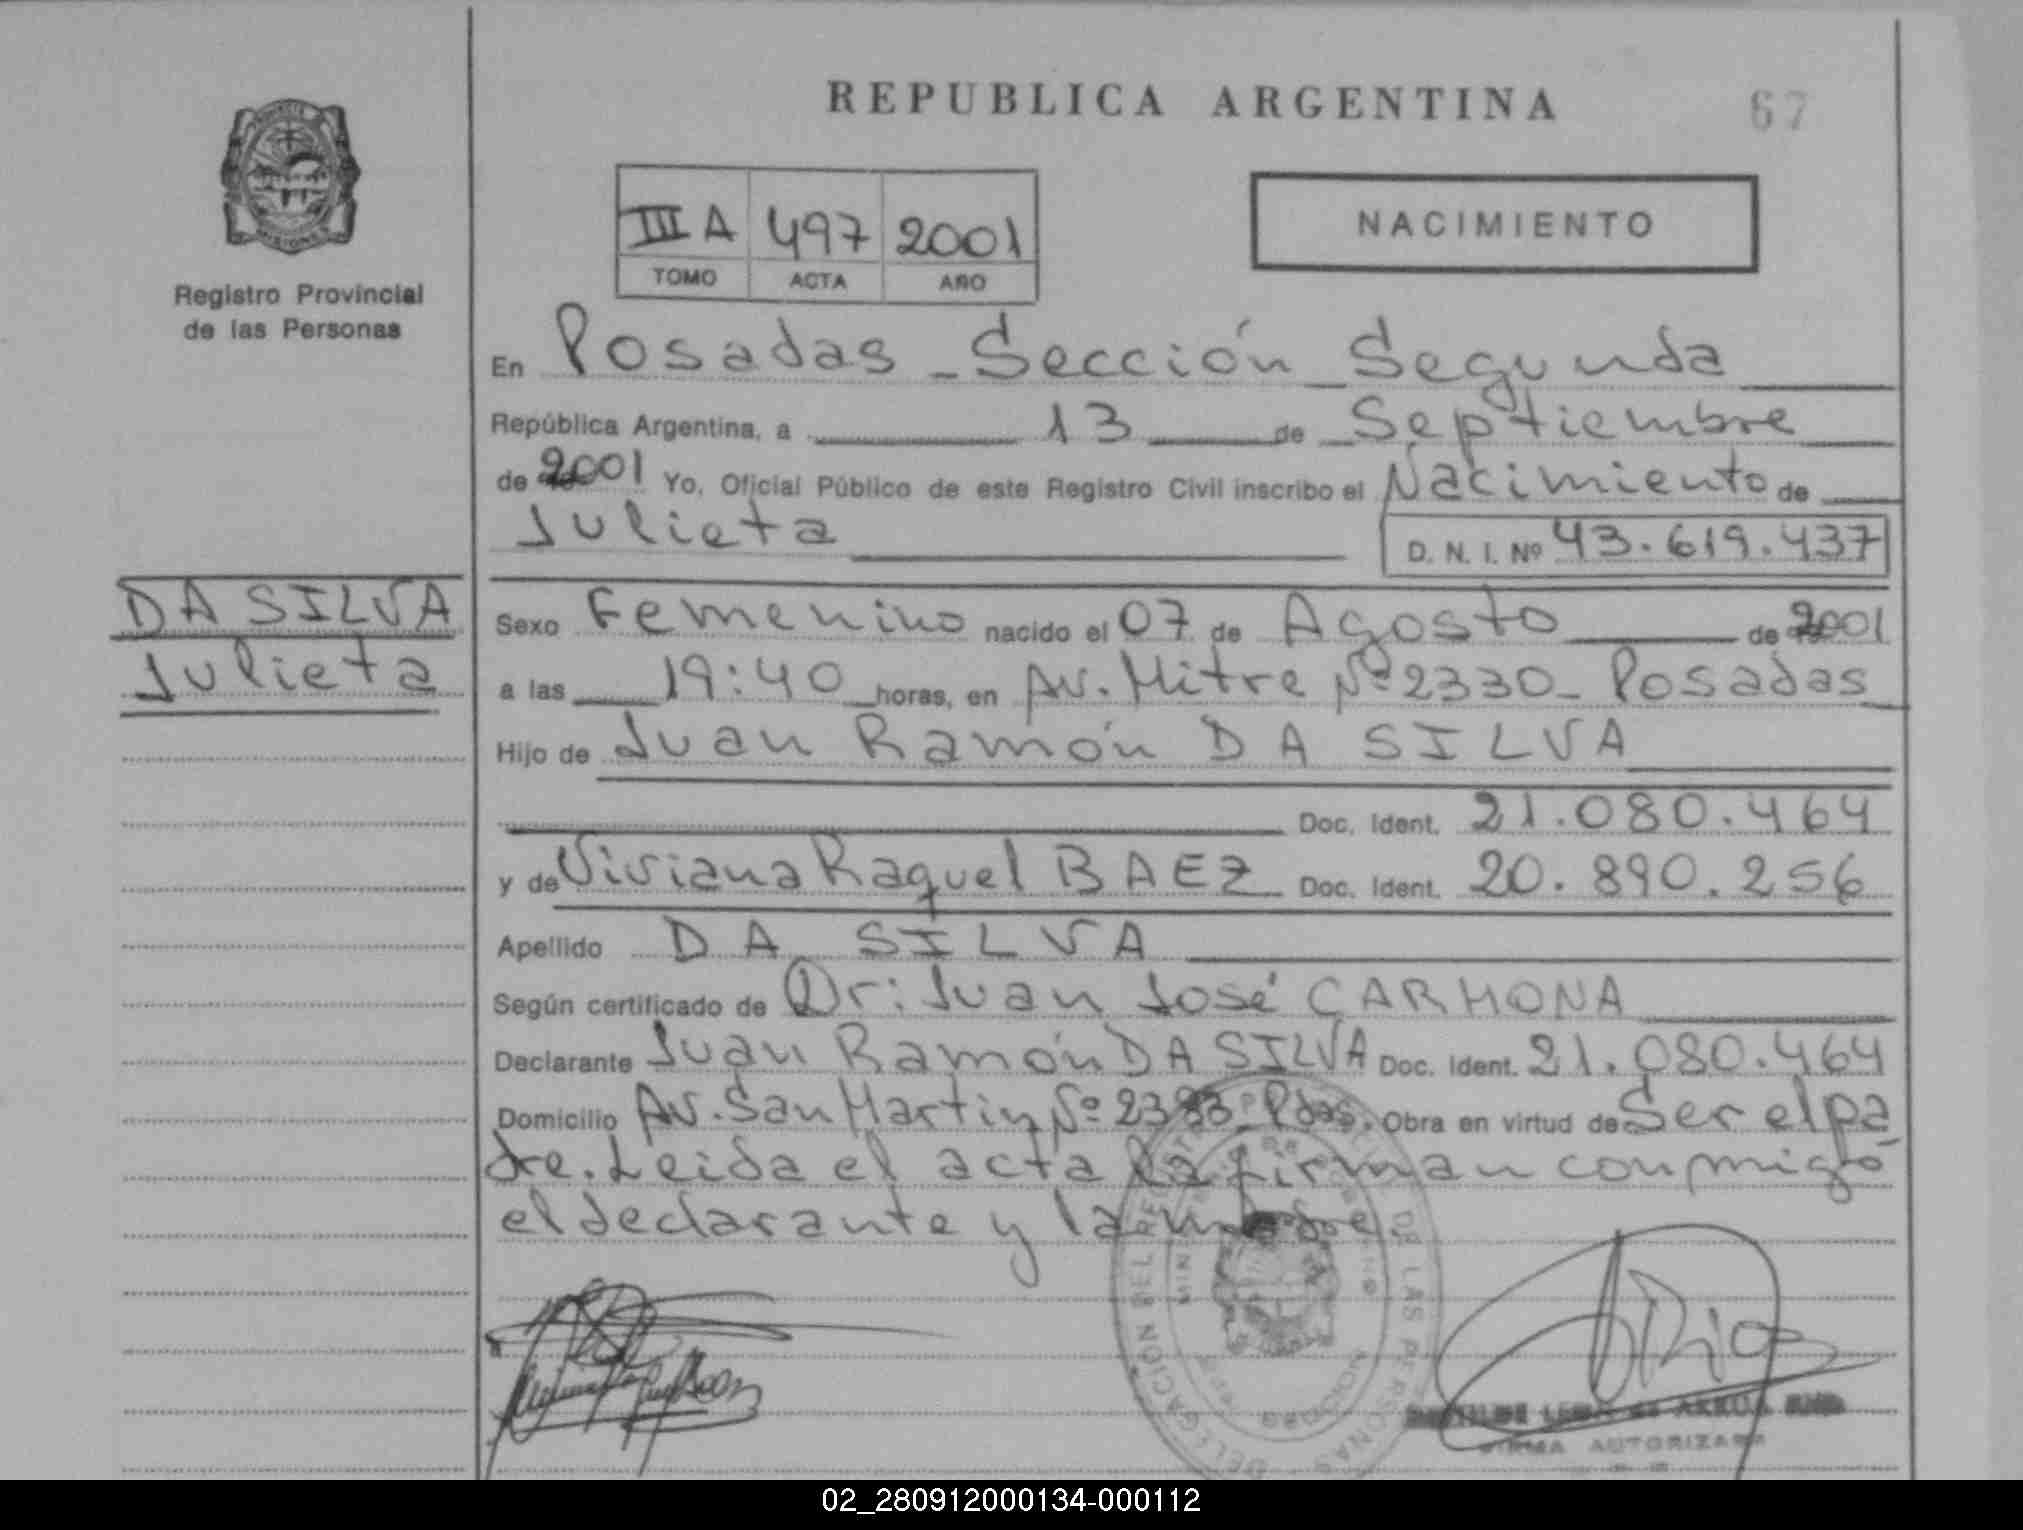 REPUBLICA ARGENTINA 67
III A 497 2001
TOMO ACTA AÑO
NACIMIENTO
MISIONES
Registro Provincial
de las Personas
En Posadas - Sección Segunda
República Argentina, a 13 de Septiembre
de 2001 Yo, Oficial Público de este Registro Civil inscribo el Nacimiento de
Julieta D. N. I. Nº 43.619.437
DA SILVA
Julieta
Sexo Femenino nacido el 07 de Agosto de 2001
a las 19:40 horas, en Av. Mitre Nº 2330 - Posadas
Hijo de Juan Ramón DA SILVA
Doc. Ident. 21.080.464
y de Viviana Raquel BAEZ Doc. Ident. 20.890.256
Apellido DA SILVA
Según certificado de Dr: Juan José CARMONA
Declarante Juan Ramón DA SILVA Doc. Ident. 21.080.464
Domicilio Av. San Martin Nº Pdas. Obra en virtud de Ser el pa
dre. Leida el acta la firman conmigo
el declarante y la madre.
DELEGACIÓN DEL REG DE LAS PERSONAS
FIRMA AUTORIZADA
02_280912000134-000112